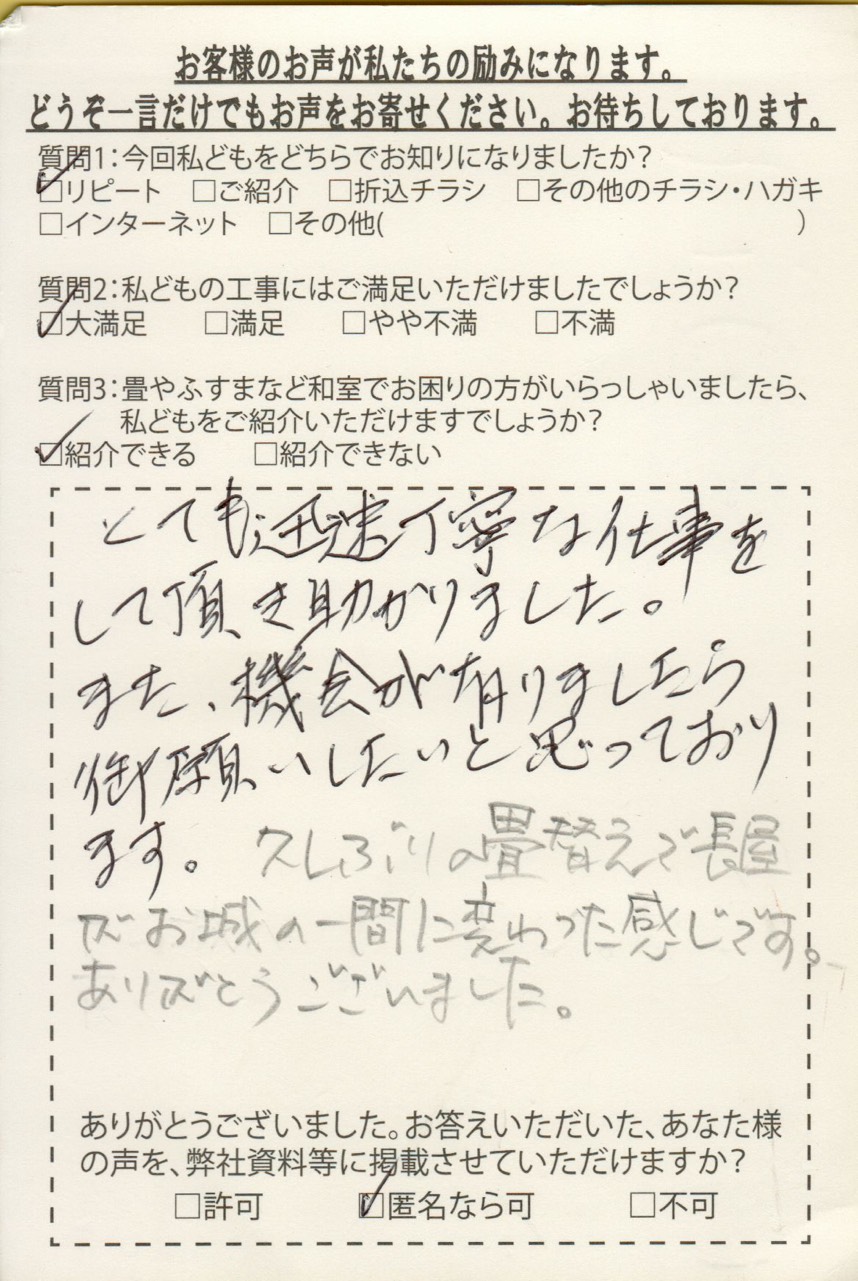 お客様のお声が私たちの励みになります。
どうぞ一言だけでもお声をお寄せください。お待ちしております。
質問1:今回私どもをどちらでお知りになりましたか?
☑リピート □ご紹介 □折込チラシ □その他のチラシ・ハガキ
□インターネット □その他( )
質問2:私どもの工事にはご満足いただけましたでしょうか?
☑大満足 □満足 □やや不満 □不満
質問3:畳やふすまなど和室でお困りの方がいらっしゃいましたら、
私どもをご紹介いただけますでしょうか?
☑紹介できる □紹介できない
とても迅速丁寧な仕事を
して頂き助かりました。
また、機会が有りましたら
御願いしたいと思っており
ます。久しぶりの畳替えで長屋
がお城の一間に変わった感じです。
ありがとうございました。
ありがとうございました。お答えいただいた、あなた様
の声を、弊社資料等に掲載させていただけますか?
□許可 ☑匿名なら可 □不可